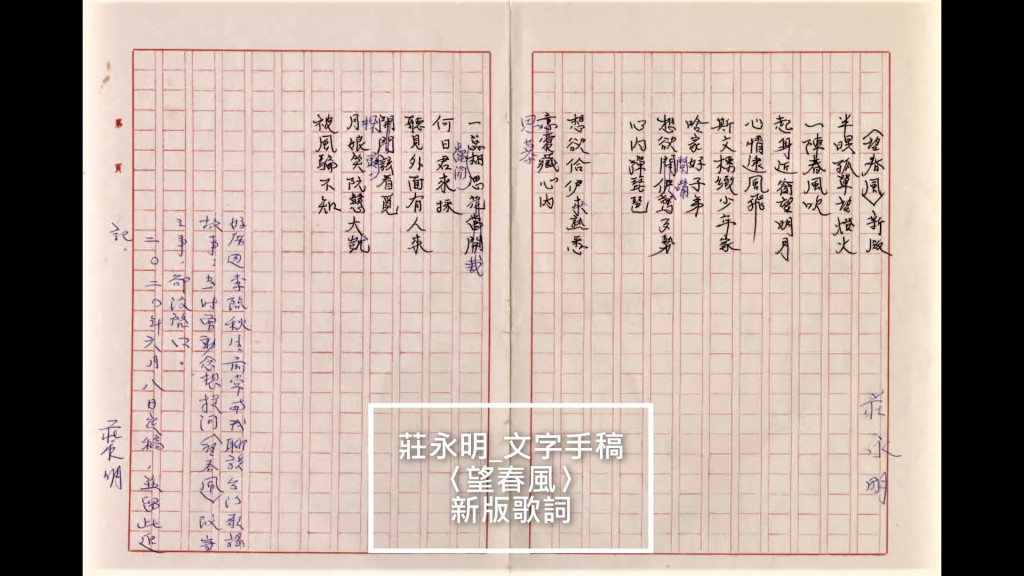 《望春風》新版
莊永明
半暝孤單望燈火
一陣春風吹
起身近窗望明月
心情逐風飛
斯文標緻少年家
啥家好子弟
想欲開伊驚歹勢
開嘴
心內彈琵琶
想欲佮伊來熟悉
意愛藏心內
思慕
一蕊相思花當開
栽
何日君來採
當開
聽見外面有人來
開門該看覓
月娘笑阮戇大獃
被風騙不知
好厝邊李臨秋生前常與我聊談台灣歌謠
故事;當時曾動念想探問《望春風》改寫
之事,卻沒啟口。
二〇二〇年六月八日定稿,並留此追
記。
莊永明
第 頁
莊永明_文字手稿
〈望春風〉
新版歌詞